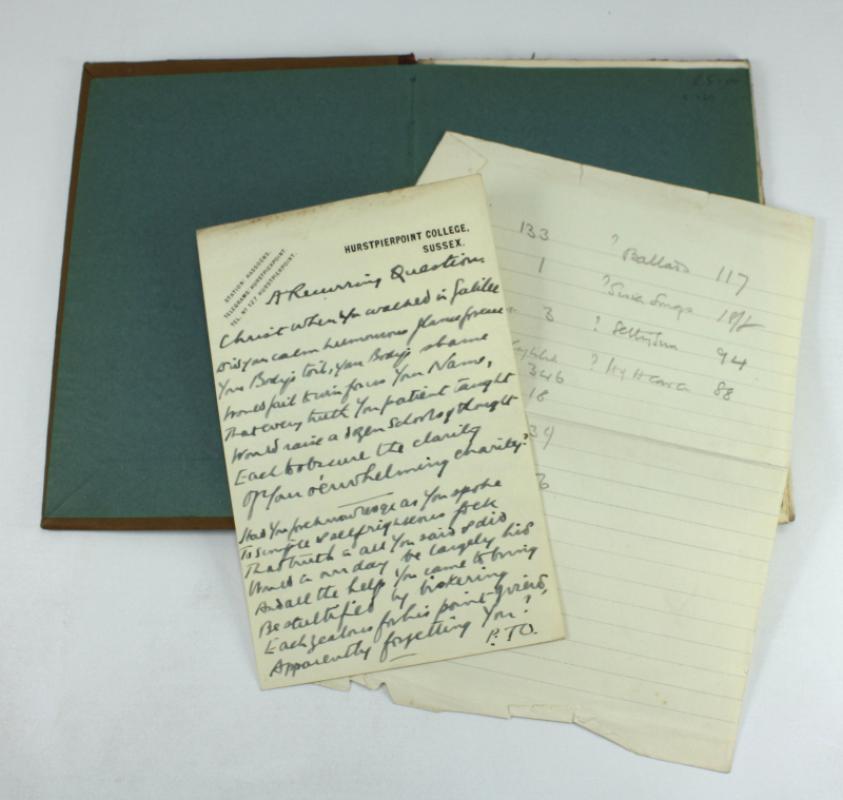 HURSTPIERPOINT COLLEGE,
SUSSEX.
STATION: HASSOCKS.
TELEGRAMS: HURSTPIERPOINT
TEL. Nº 127 HURSTPIERPOINT.
A Recurring Question
Christ when You walked in Galilee
Did You calm humourous glance foresee
Your Body's toil, Your Body's shame
Would fail to win for us Your Name,
That every truth You patient taught
Would raise a dozen schools of thought
Each to obscure the clarity
Of Your o'erwhelming charity?
Had You foreknowledge as You spoke
To simple & selfrighteous folk
That truth in all You said & did
Would in our day be largely hid
And all the help You came to bring
Be stultified by bickering
Each zealous for his point of view,
Apparently forgetting You?
P.T.O.
133
1
3
346
18
34
3
? Ballads 117
?
?
94
?
88